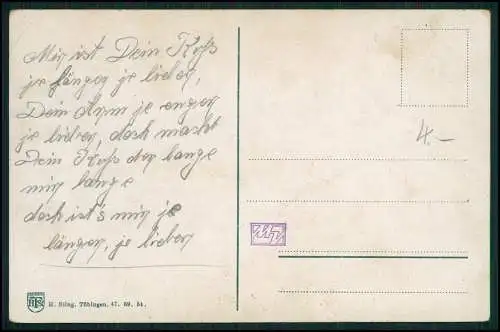 Mir ist Dein Kuß
je länger je lieber,
Dein Arm je enger
je lieber, doch macht
Dein Kuß der bange
mir lange
doch ist's mir je
länger, je lieber
4.-
H. Sting, Tübingen. 47. 69. 54.